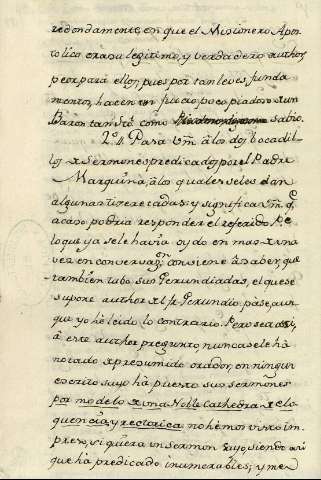 redondamente, en que el Missionero Apos
tolico era su legitimo, y verdadero author,
peor para ellos, pues por tan leves funda
mentos, hacen tan juicio poco piadoso de un
Baron tan como sabio.
2.º 11 Passa Vm. a los dos bocadil
los de Sermones predicados por el Padre
Marquina, a los quales se les dan
algunas tixeretadas; y significa Vm. q.
acaso podria responder el referido Pe
lo que ya se le havia oydo en mas de una
vez en conversaz.on, conviene a saber, que
tambien tubo sus Gerundiadas, el que se
supone author del fr. Gerundio: pase, aun
que yo he leido lo contrario. Pero sea assi,
à este author pregunto, nunca se le hà
notado de presumido orador, en ningun
escrito suyo hà puesto sus sermones
por modelo de una Noble Cathedra de elo
quencia, y rectorica: no hèmos visto im
preso, si quiera un sermon suyo, siendo assi
que hà predicado inumerables; y me